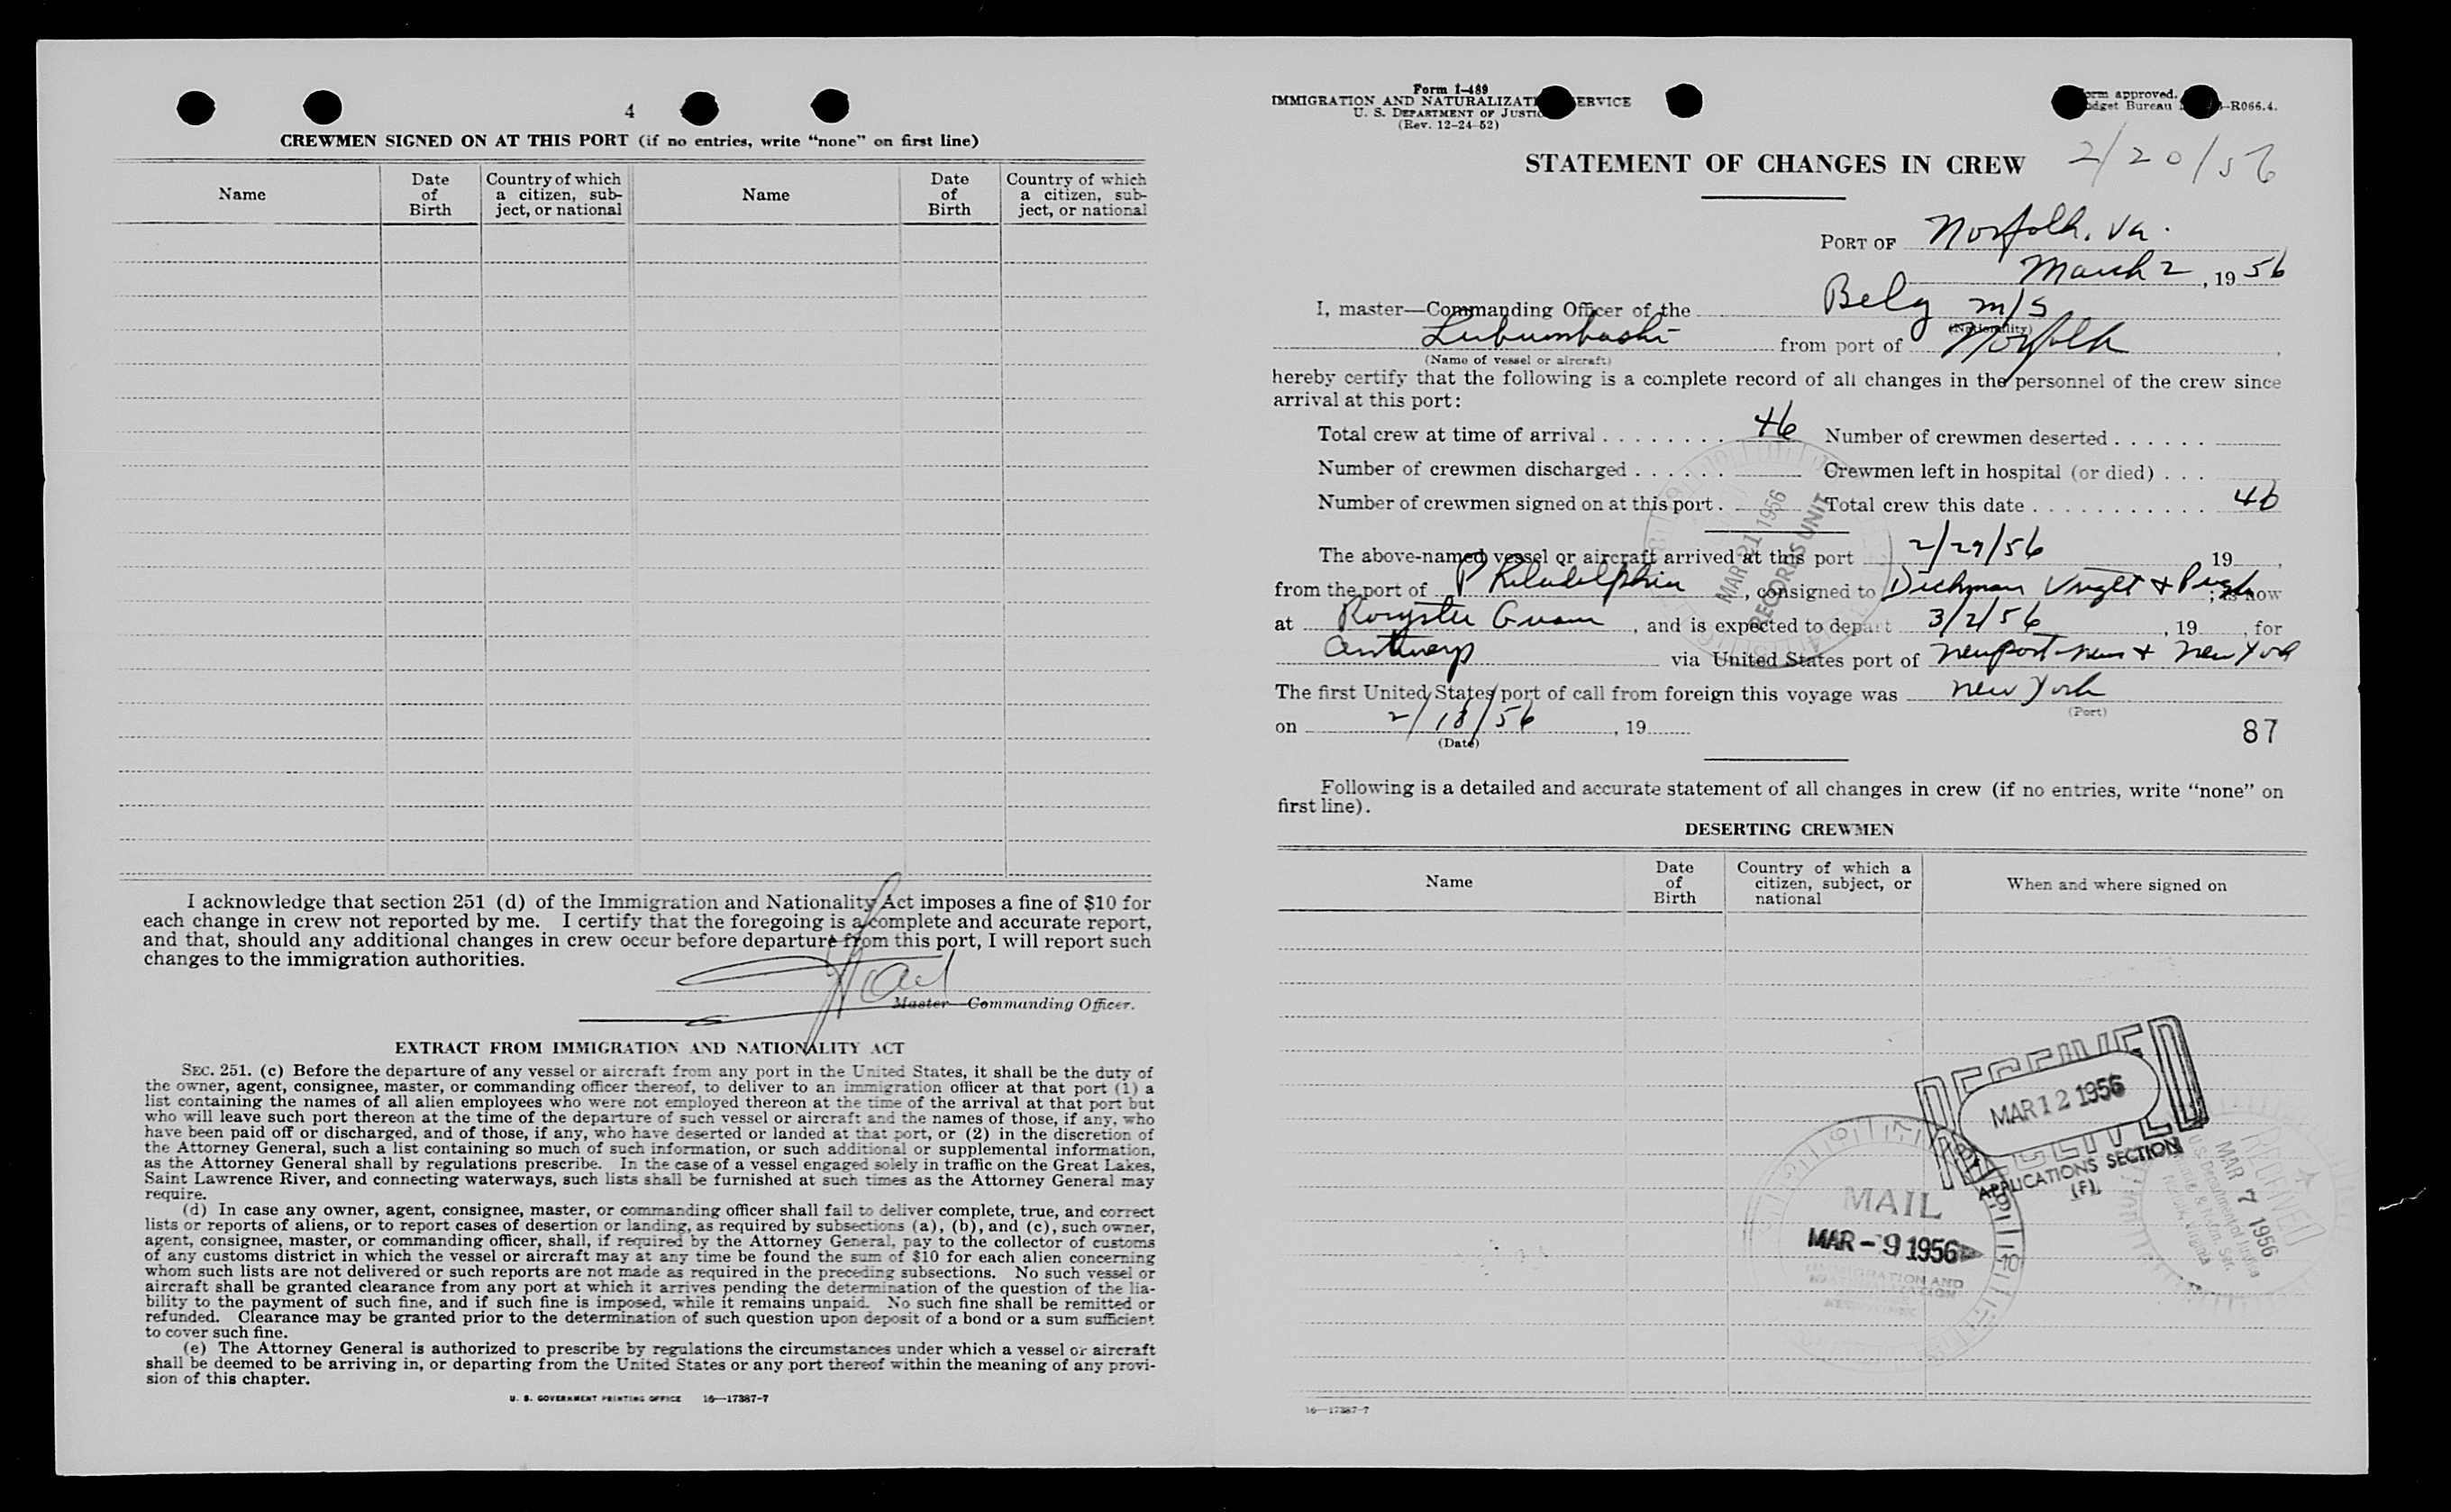 4
CREWMEN SIGNED ON AT THIS PORT (if no entries, write “none” on first line)
Name
Date of Birth
Country of which a citizen, sub-ject, or national
Name
Date of Birth
Country of which a citizen, sub-ject, or national
I acknowledge that section 251 (d) of the Immigration and Nationality Act imposes a fine of $10 for
each change in crew not reported by me. I certify that the foregoing is a complete and accurate report,
and that, should any additional changes in crew occur before departure from this port, I will report such
changes to the immigration authorities.
Master—Commanding Officer.
EXTRACT FROM IMMIGRATION AND NATIONALITY ACT
SEC. 251. (c) Before the departure of any vessel or aircraft from any port in the United States, it shall be the duty of
the owner, agent, consignee, master, or commanding officer thereof, to deliver to an immigration officer at that port (1) a
list containing the names of all alien employees who were not employed thereon at the time of the arrival at that port but
who will leave such port thereon at the time of the departure of such vessel or aircraft and the names of those, if any, who
have been paid off or discharged, and of those, if any, who have deserted or landed at that port, or (2) in the discretion of
the Attorney General, such a list containing so much of such information, or such additional or supplemental information,
as the Attorney General shall by regulations prescribe. In the case of a vessel engaged solely in traffic on the Great Lakes,
Saint Lawrence River, and connecting waterways, such lists shall be furnished at such times as the Attorney General may
require.
(d) In case any owner, agent, consignee, master, or commanding officer shall fail to deliver complete, true, and correct
lists or reports of aliens, or to report cases of desertion or landing, as required by subsections (a), (b), and (c), such owner,
agent, consignee, master, or commanding officer, shall, if required by the Attorney General, pay to the collector of customs
of any customs district in which the vessel or aircraft may at any time be found the sum of $10 for each alien concerning
whom such lists are not delivered or such reports are not made as required in the preceding subsections. No such vessel or
aircraft shall be granted clearance from any port at which it arrives pending the determination of the question of the lia-
bility to the payment of such fine, and if such fine is imposed, while it remains unpaid. No such fine shall be remitted or
refunded. Clearance may be granted prior to the determination of such question upon deposit of a bond or a sum sufficient
to cover such fine.
(e) The Attorney General is authorized to prescribe by regulations the circumstances under which a vessel or aircraft
shall be deemed to be arriving in, or departing from the United States or any port thereof within the meaning of any provi-
sion of this chapter.
U. S. GOVERNMENT PRINTING OFFICE 16—17387-7
Form I-489
IMMIGRATION AND NATURALIZATI ERVICE
U. S. DEPARTMENT OF JUSTIC
(Rev. 12-24-52)
orm approved.
dget Bureau -R066.4.
STATEMENT OF CHANGES IN CREW 2/20/56
PORT OF Norfolk, Va.
March 2, 19 56
I, master—Commanding Officer of the Belg m/s
(Nationality)
Lubumbashi from port of Norfolk,
(Name of vessel or aircraft)
hereby certify that the following is a complete record of all changes in the personnel of the crew since
arrival at this port:
Total crew at time of arrival 46 Number of crewmen deserted
Number of crewmen discharged Crewmen left in hospital (or died)
Number of crewmen signed on at this port Total crew this date 46
The above-named vessel or aircraft arrived at this port 2/29/56 19,
from the port of Philadelphia, consigned to Dichman Wright & Pugh; is now
at Royster Guano, and is expected to depart 3/2/56, 19, for
Antwerp via United States port of Newport-News & New York
The first United States port of call from foreign this voyage was New York
(Port)
on 2/18/56, 19
(Date)
87
Following is a detailed and accurate statement of all changes in crew (if no entries, write “none” on
first line).
DESERTING CREWMEN
Name
Date of Birth
Country of which a citizen, subject, or national
When and where signed on
MAR 21 1956
RECORDS UNIT
RECEIVED
MAR 12 1956
RECEIVED
APPLICATIONS SECTION
(F).
MAIL
MAR - 9 1956
IMMIGRATION AND
NATURALIZATION
RECEIVED
MAR 7 1956
U.S. Department of Justice
Norfolk, Virginia
16—17387-7